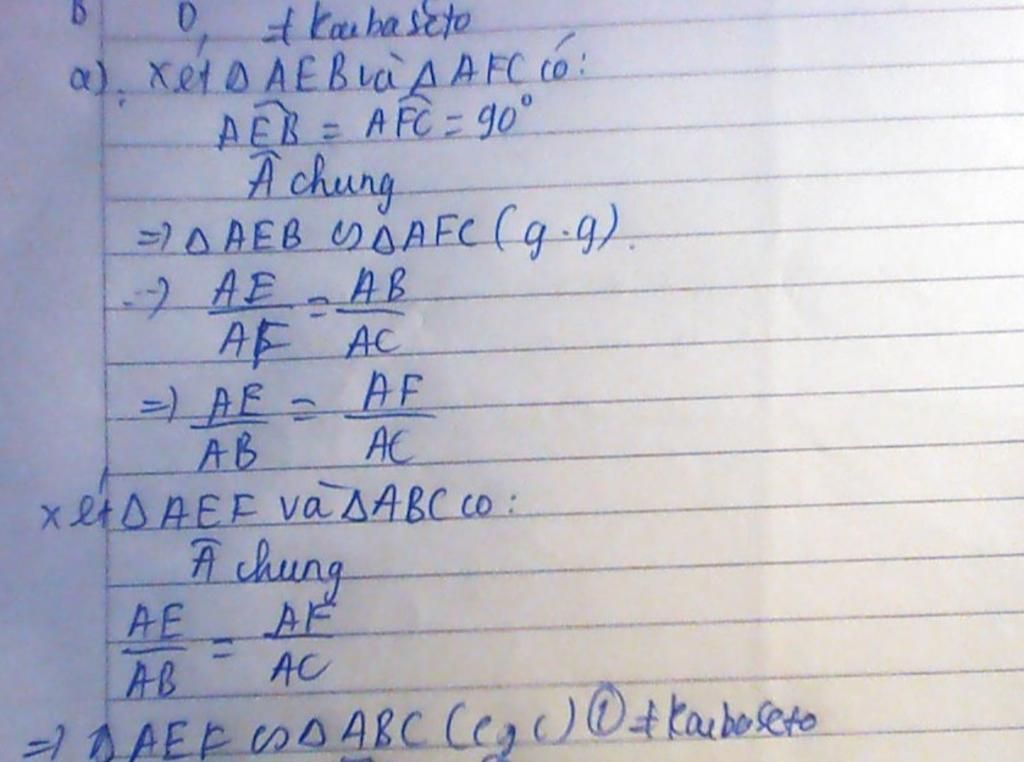 B D, ≠ Kaibaseto
a). xét Δ AEB và Δ AFC có:
AÊB = AF̂C = 90°
Â chung
=> Δ AEB ∽ Δ AFC (g.g).
=> AE/AF = AB/AC
=> AE/AB = AF/AC
xét Δ AEF và Δ ABC co:
Â chung
AE/AB = AF/AC
=> Δ AEF ∽ Δ ABC (c g c) ① ≠ Kaibaseto